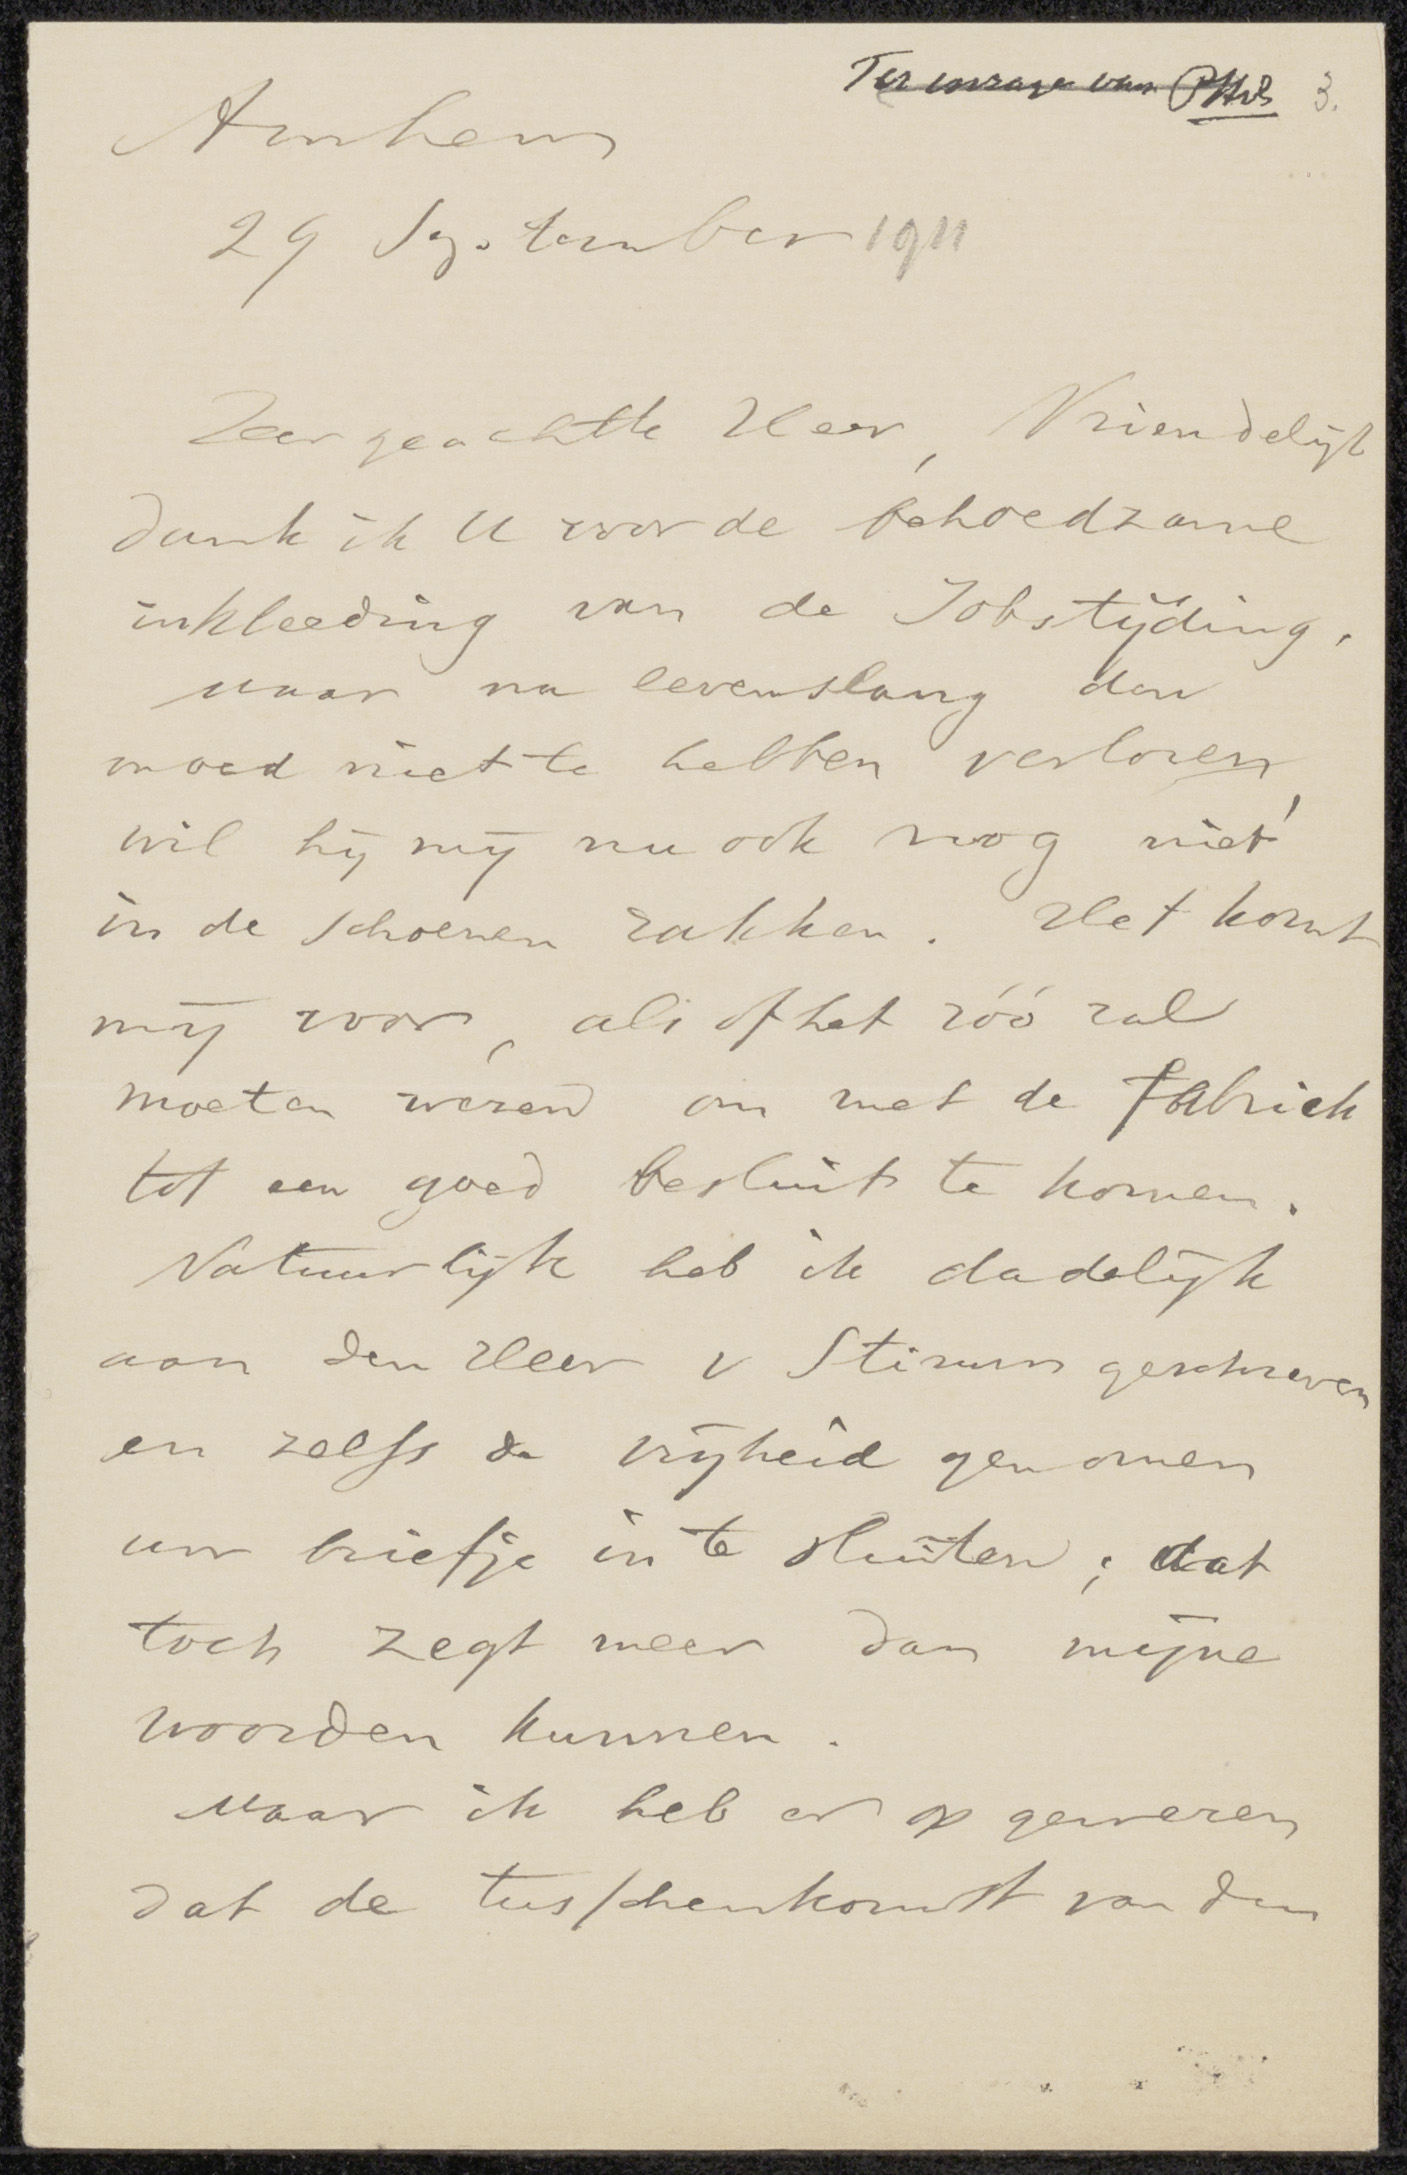 Ter inzage van PHvS 3.
Arnhem
29 September 1911
Zeer geachte Heer, Vriendelijk
dank ik U voor de behoedzame
inkleeding van de Jobstijding,
maar na levenslang den
moed niet te hebben verloren,
wil hij mij nu ook nog niet
in de schoenen zakken. Het komt
mij voor, als of het zóó zal
moeten wezen om met de fabriek
tot een goed besluit te komen.
Natuurlijk heb ik dadelijk
aan den Heer v Stirum geschreven
en zelfs de vrijheid genomen
uw briefje in te sluiten; dat
toch zegt meer dan mijne
woorden kunnen.
Maar ik heb er op gewezen
dat de tusschenkomst van den